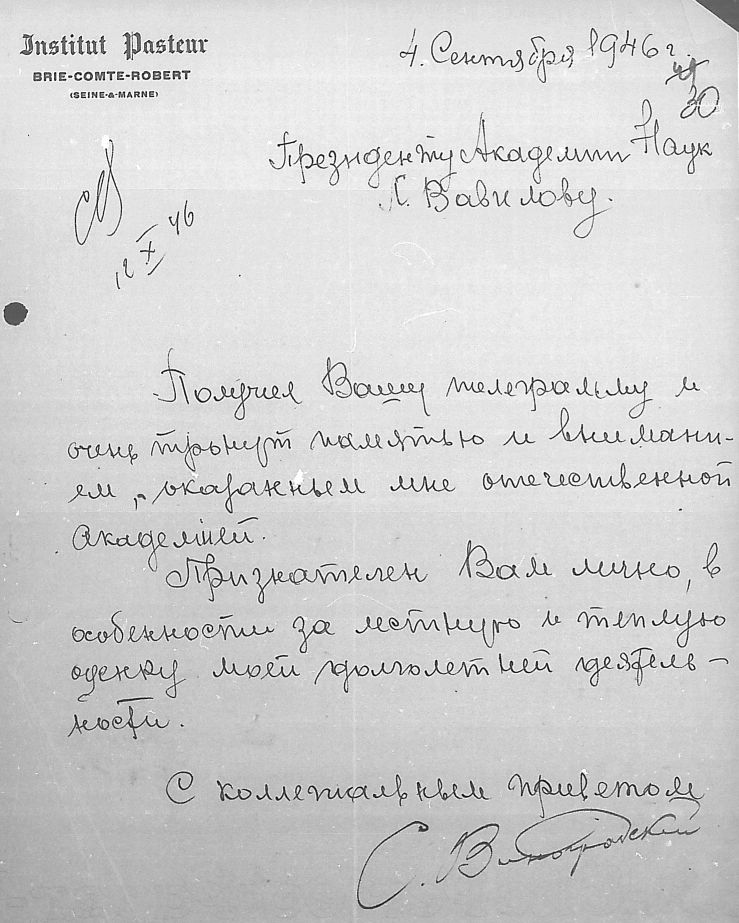 Institut Pasteur
BRIE-COMTE-ROBERT
(SEINE-&-MARNE)
4. Сентября 1946 г.
30
Президенту Академии Наук
С. Вавилову.
12 X 46
Получил Вашу телеграмму и
очень тронут памятью и внимани-
ем, оказанным мне отечественной
Академией.
Признателен Вам лично, в
особенности за лестную и теплую
оценку моей долголетней деятель-
ности.
С коллегиальным приветом
С. Виноградский